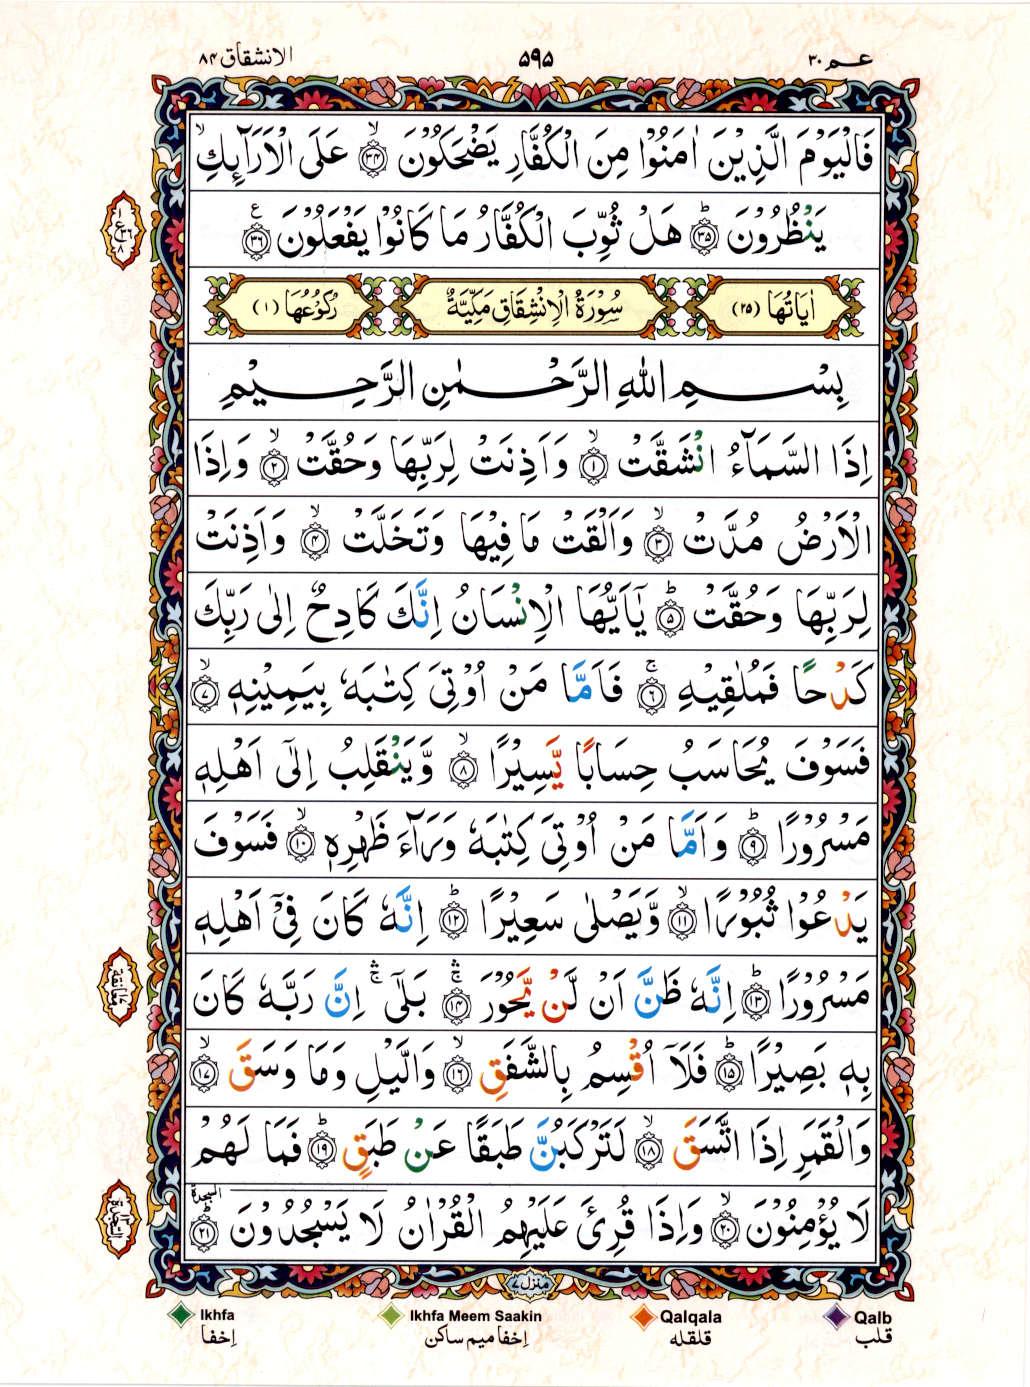 عـم ٣٠ ٥٩٥ الانشقاق ٨٤
فَالْيَوْمَ الَّذِيْنَ اٰمَنُوْا مِنَ الْكُفَّارِ يَضْحَكُوْنَ ۙ‏﴿۳۴﴾ عَلَى الْاَرَآىِٕكِ ۙ
يَنْظُرُوْنَ ؕ‏﴿۳۵﴾ هَلْ ثُوِّبَ الْكُفَّارُ مَا كَانُوْا يَفْعَلُوْنَ ‏﴿۳۶﴾ ع
اٰيَاتُهَا (٢٥) سُوْرَةُ الْاِنْشِقَاقِ مَكِّيَّةٌ رُكُوْعُهَا (١)
بِسْـــمِ اللّٰهِ الرَّحْـــمٰنِ الرَّحِـــيْمِ
اِذَا السَّمَآءُ انْشَقَّتْ ۙ‏﴿۱﴾ وَاَذِنَتْ لِرَبِّهَا وَحُقَّتْ ۙ‏﴿۲﴾ وَاِذَا
الْاَرْضُ مُدَّتْ ۙ‏﴿۳﴾ وَاَلْقَتْ مَا فِيْهَا وَتَخَلَّتْ ۙ‏﴿۴﴾ وَاَذِنَتْ
لِرَبِّهَا وَحُقَّتْ ؕ‏﴿۵﴾ يٰۤاَيُّهَا الْاِنْسَانُ اِنَّكَ كَادِحٌ اِلٰى رَبِّكَ
كَدْحًا فَمُلٰقِيْهِ ۚ‏﴿۶﴾ فَاَمَّا مَنْ اُوْتِىَ كِتٰبَهٗ بِيَمِيْنِهٖ ۙ‏﴿۷﴾
فَسَوْفَ يُحَاسَبُ حِسَابًا يَّسِيْرًا ۙ‏﴿۸﴾ وَّيَنْقَلِبُ اِلٰٓى اَهْلِهٖ
مَسْرُوْرًا ؕ‏﴿۹﴾ وَاَمَّا مَنْ اُوْتِىَ كِتٰبَهٗ وَرَآءَ ظَهْرِهٖ ۙ‏﴿۱۰﴾ فَسَوْفَ
يَدْعُوْا ثُبُوْرًا ۙ‏﴿۱۱﴾ وَّيَصْلٰى سَعِيْرًا ؕ‏﴿۱۲﴾ اِنَّهٗ كَانَ فِىْۤ اَهْلِهٖ
مَسْرُوْرًا ؕ‏﴿۱۳﴾ اِنَّهٗ ظَنَّ اَنْ لَّنْ يَّحُوْرَ ۛۚ‏﴿۱۴﴾ بَلٰٓى ۛۚ اِنَّ رَبَّهٗ كَانَ
بِهٖ بَصِيْرًا ؕ‏﴿۱۵﴾ فَلَآ اُقْسِمُ بِالشَّفَقِ ۙ‏﴿۱۶﴾ وَالَّيْلِ وَمَا وَسَقَ ۙ‏﴿۱۷﴾
وَالْقَمَرِ اِذَا اتَّسَقَ ۙ‏﴿۱۸﴾ لَتَرْكَبُنَّ طَبَقًا عَنْ طَبَقٍ ؕ‏﴿۱۹﴾ فَمَا لَهُمْ
لَا يُؤْمِنُوْنَ ۙ‏﴿۲۰﴾ وَاِذَا قُرِئَ عَلَيْهِمُ الْقُرْاٰنُ لَا يَسْجُدُوْنَ ؕ‏﴿۲۱﴾ السجدة
ع ۳۶ ۸
معانقة
السجدة
منزل ٧
Ikhfa Ikhfa Meem Saakin Qalqala Qalb
إخفا إخفا ميم ساكن قلقله قلب